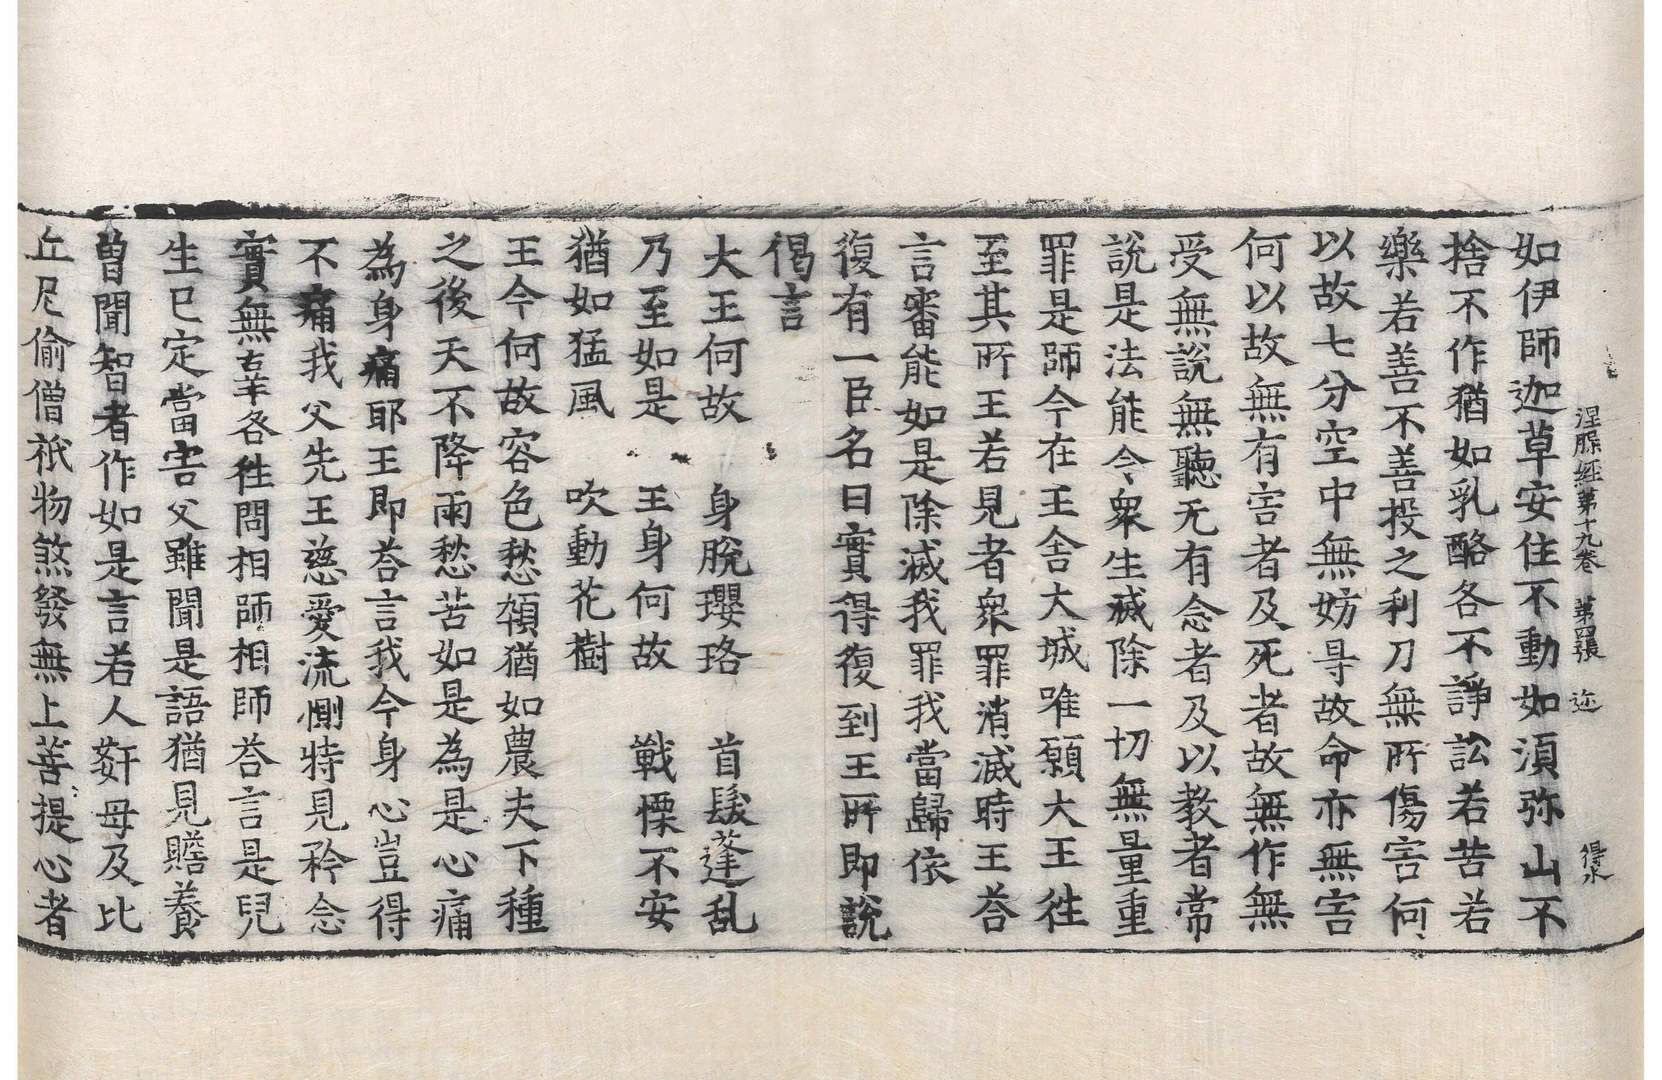 涅槃経第十九卷 第四張 迩 得水
如伊師迦草安住不動如湏弥山不
捨不作猶如乳酪各不諍訟若苦若
樂若善不善投之利刀無所傷害何
以故七分空中無妨㝵故命亦無害
何以故無有害者及死者故無作無
受無說無聽无有念者及以教者常
說是法能令衆生滅除一切無量重
罪是師今在王舍大城唯願大王徃
至其所王若見者衆罪消滅時王荅
言審能如是除滅我罪我當歸依
復有一臣名曰實得復到王所即說
偈言
大王何故 身脫瓔珞 首髮蓬乱
乃至如是 王身何故 戰慄不安
猶如猛風 吹動花樹
王今何故容色愁顇猶如農夫下種
之後天不降雨愁苦如是為是心痛
為身痛耶王即荅言我今身心豈得
不痛我父先王慈愛流惻特見矜念
實無辜咎徃問相師相師荅言是兒
生已定當害父雖聞是語猶見贍養
曽聞智者作如是言若人姧母及比
丘尼偷僧祇物煞發無上菩提心者